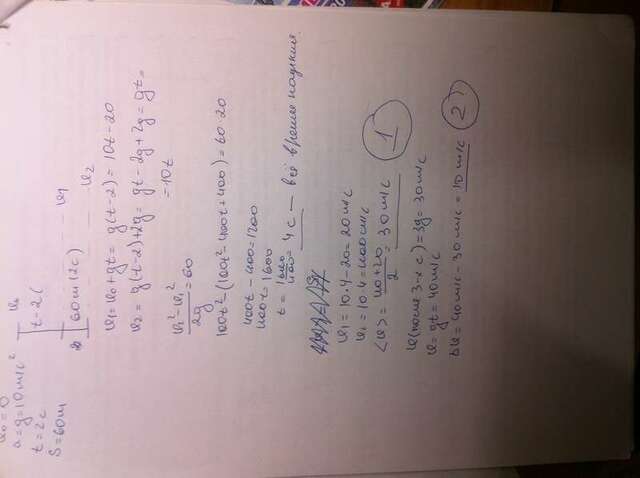 v₀=0
a=g=10м/с²
t=2с
S=60м
v₀
t-2с
60м(2с)
v₁
v₂
v₁=v₀+gt= g(t-2)= 10t-20
v₂= g(t-2)+2g= gt-2g+2g=gt=
=10t
v₂²-v₁²/2g=60
100t²-(100t²-400t+400)=60·20
400t-400=1200
400t=1600
t=1600/400=4с — всё время падения.
v₁=10·4-20=20м/с
v₂=10·4=40м/с
<v>=40+20/2=30м/с 1
v(после 3-х с)=3g=30м/с
v=gt=40м/с
Δv=40м/с-30м/с=10м/с 2